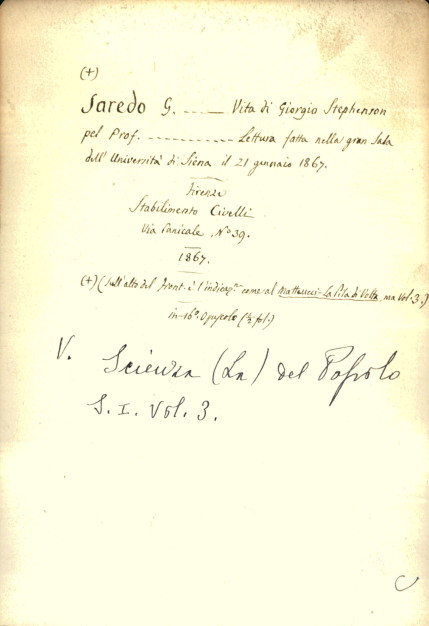 (+)
Saredo G. ........ Vita di Giorgio Stephenson
pel Prof. ............ Lettura fatta nella gran Sala
dell'Università di Siena il 21 gennaio 1867.
Firenze
Stabilimento Civelli
Via Panicale, N° 39.
1867.
(+) (Sull'alto del front. è l'indicazne come al Matteucci - La Pila di Volta, ma Vol. 3.)
in-16° Opuscolo (½ fol.)
V. Scienza (La) del Popolo
S. I. Vol. 3.
C